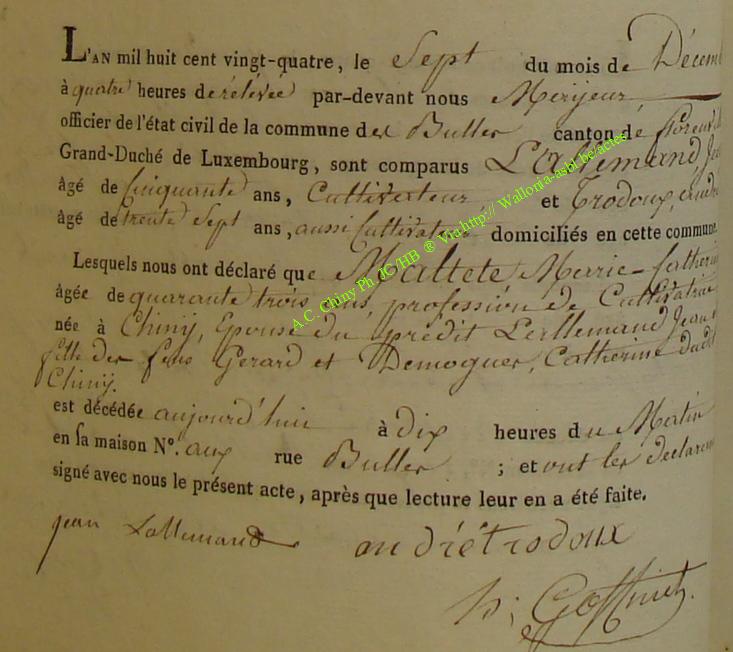 L'AN mil huit cent vingt-quatre, le Sept du mois de Décem
à quatre heures de rélévée par-devant nous
officier de l'état civil de la commune des Bulles canton de Florenvil
Grand-Duché de Luxembourg, sont comparus L'allemand, Jea
âgé de Cinquante ans, Cultivateur et Trodoux, andré
âgé de trente Sept ans, aussi Cultivateur domiciliés en cette commune.
Lesquels nous ont déclaré que Maltete Marie-Catherin
âgée de quarante trois ans, profession de Cultivatrice
née à Chiny, Epouse du prédit Lallemand Jean
fille des feus Gerard et Demoguer, Catherine dudit
Chiny.
est décédée aujourd'huie à dix heures du Matin
en sa maison N°. aux rue Bulles ; et ont les déclarans
signé avec nous le présent acte, après que lecture leur en a été faite.
jean Lallemand andrétrodoux
h; Goffinet
A.C. Chiny Ph JC/HB ® Via http:// Wallonia-asbl.be/actes